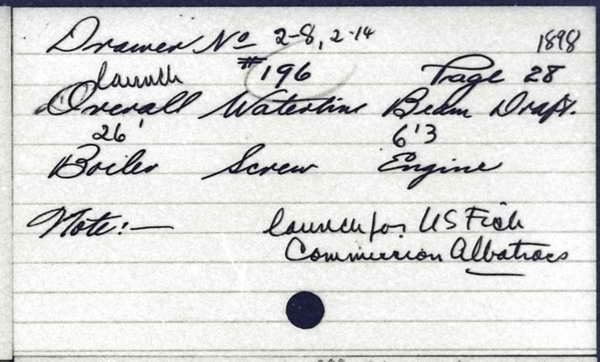 Drawer No 2-8, 2-14 1898
launch #196 Page 28
Overall Waterline Beam Draft.
26' 6'3
Boiler Screw Engine
Note:— launch for US Fish
Commission Albatross